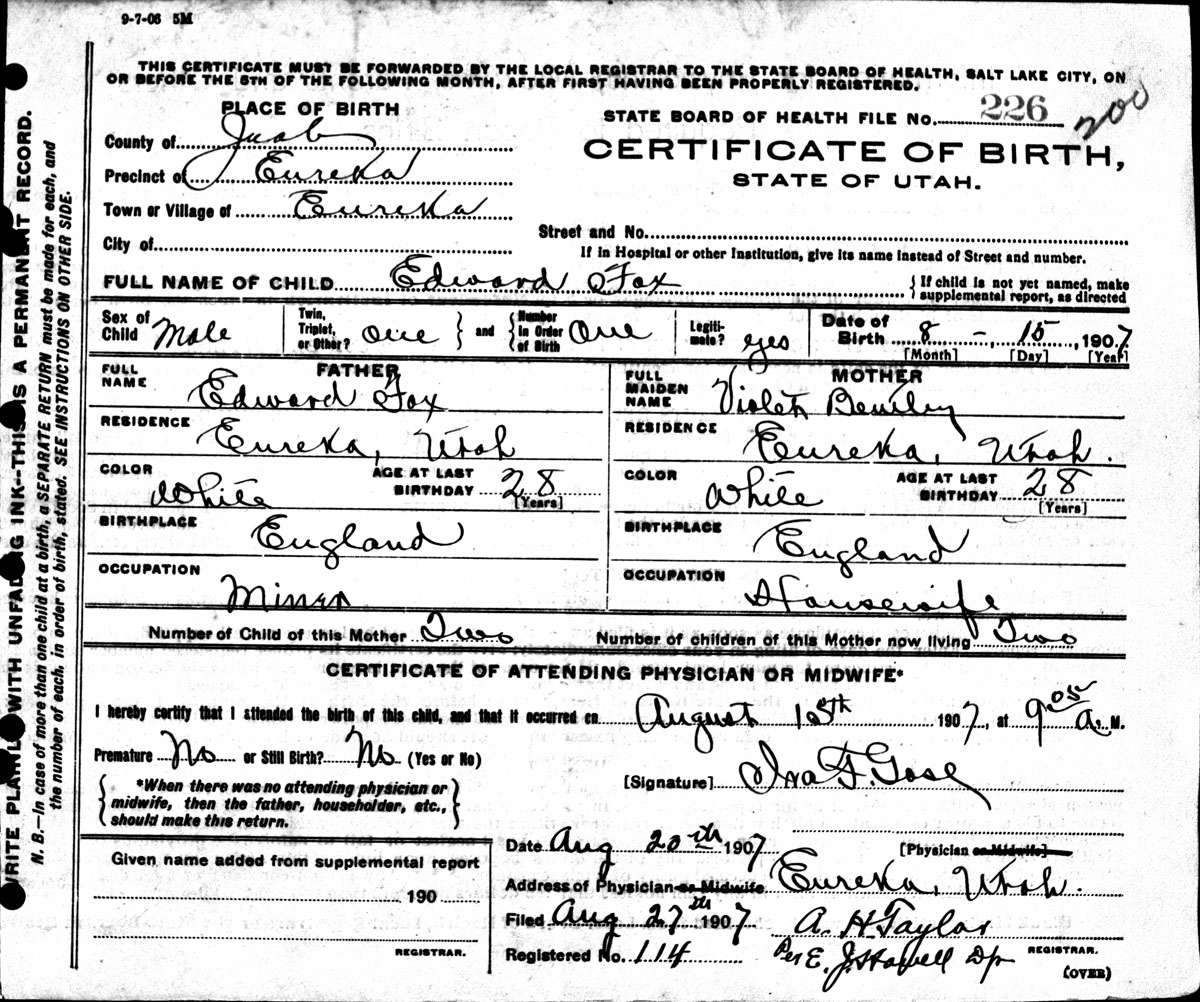 9-7-06 5M
THIS CERTIFICATE MUST BE FORWARDED BY THE LOCAL REGISTRAR TO THE STATE BOARD OF HEALTH, SALT LAKE CITY, ON
OR BEFORE THE 5TH OF THE FOLLOWING MONTH, AFTER FIRST HAVING BEEN PROPERLY REGISTERED.
PLACE OF BIRTH
STATE BOARD OF HEALTH FILE NO. 226 200
County of Juab
CERTIFICATE OF BIRTH,
Precinct of Eureka
STATE OF UTAH.
Town or Village of Eureka
City of
Street and No.
If in Hospital or other Institution, give its name instead of Street and number.
FULL NAME OF CHILD Edward Fox
{ If child is not yet named, make
supplemental report, as directed
Sex of Child Male
Twin, Triplet, or Other? One } and { Number In Order of Birth One
Legiti-mate? yes
Date of Birth 8 - 15, 1907
[Month] [Day] [Year]
FATHER
FULL NAME Edward Fox
MOTHER
FULL MAIDEN NAME Violet Bentley
RESIDENCE Eureka, Utah
RESIDENCE Eureka, Utah.
COLOR White AGE AT LAST BIRTHDAY 28 [Years]
COLOR White AGE AT LAST BIRTHDAY 28 [Years]
BIRTHPLACE England
BIRTHPLACE England
OCCUPATION Miner
OCCUPATION Housewife
Number of Child of this Mother Two Number of children of this Mother now living Two
CERTIFICATE OF ATTENDING PHYSICIAN OR MIDWIFE*
I hereby certify that I attended the birth of this child, and that it occurred on August 15th 1907, at 9 05 A. M.
Premature No or Still Birth? No (Yes or No)
[Signature] Ira F. Gose
{ *When there was no attending physician or
midwife, then the father, householder, etc.,
should make this return. }
Date Aug 20th 1907 [Physician or Midwife]
Given name added from supplemental report
190
REGISTRAR.
Address of Physician or Midwife Eureka, Utah.
Filed Aug 27th 1907 A. H. Taylor
Registered No. 114 Per E. J. Howell Dp REGISTRAR.
(OVER)
WRITE PLAINLY WITH UNFADING INK--THIS IS A PERMANENT RECORD.
N. B.—In case of more than one child at a birth, a SEPARATE RETURN must be made for each, and
the number of each, in order of birth, stated. SEE INSTRUCTIONS ON OTHER SIDE.